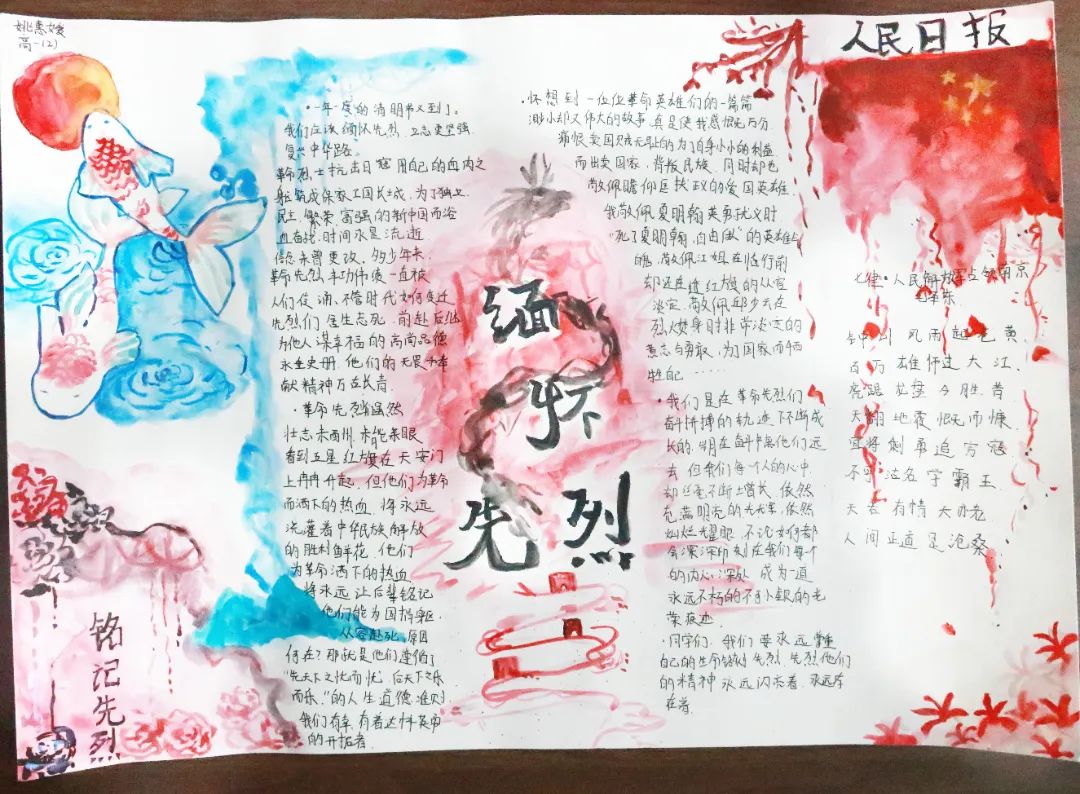 姚惠媛
高一(2)
·一年一度的清明节又到了。
我们应该缅怀先烈,立志更坚强
复兴中华路。
革命烈士抗击日寇,用自己的血肉之
躯筑成保家卫国长城,为了独立
民主,繁荣富强的新中国而浴
血奋战,时间永是流逝
信念未曾更改,多少年来,
革命先烈丰功伟绩一直被
人们传诵,不管时代如何变迁
先烈们舍生忘死,前赴后继
为他人谋幸福的高尚品德
永垂史册,他们的无畏和奉
献精神万古长青
·革命先烈虽然
壮志未酬,未能亲眼
看到五星红旗在天安门
上冉冉升起,但他们为革命
而洒下的热血,将永远
浇灌着中华民族解放
的胜利鲜花,他们
为革命洒下的热血
将永远让后辈铭记
他们能为国捐躯
从容赴死,原因
何在?那就是他们遵循了
"先天下之忧而忧,后天下之乐
而乐。"的人生道德准则
我们有幸,有着这样英勇
的开拓者
铭记先烈
缅怀
先烈
·怀想到一位位革命英雄们的一篇篇
渺小却又伟大的故事,真是使我感慨万分
痛恨卖国贼无耻的为了自身小小的利益
而出卖国家,背叛民族,同时却也
敬佩瞻仰匡扶政的爱国英雄,
我敬佩夏明翰英勇就义时
"死了夏明翰,自由后人"的英雄气
魄,敬佩江姐在临行前
却还在进红旗的从容
淡定,敬佩邱少云在
烈火焚身时非常淡定的
意志与勇敢,为了国家而牺
牲自己……
·我们是在革命先烈们
奋斗拼搏的轨迹下不断成
长的,明月在奋斗虽他们远
去,但我们每个人的心中,
却丝毫不断增长,依然
充满明亮的光辉,依然
灿烂光耀眼,不论如何都
会深深印刻在我们每个
的内心深处,成为一道
永远不朽的不可小觑的光
荣痕迹
·同学们,我们要永远尊重
自己的生命,铭刻先烈,先烈他们
的精神永远闪烁着,永远存
在着.
人民日报
七律·人民解放军占领南京
毛泽东
钟山风雨起苍黄,
百万雄师过大江,
虎踞龙盘今胜昔
天翻地覆慨而慷,
宜将剩勇追穷寇
不可沽名学霸王,
天若有情天亦老
人间正道是沧桑